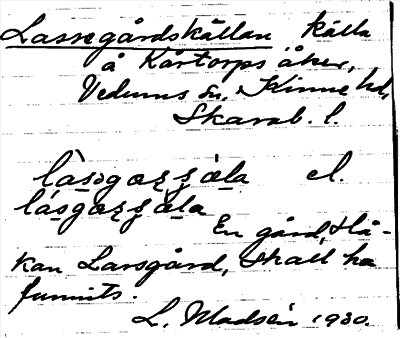 Lassegårdskällan källa
å Kårtorps åker,
Vedums sn, Kinne hd,
Skarab. l.
el.
En gård, Hå-
kan Larsgård, skall ha
funnits.
L. Madsén 1930.